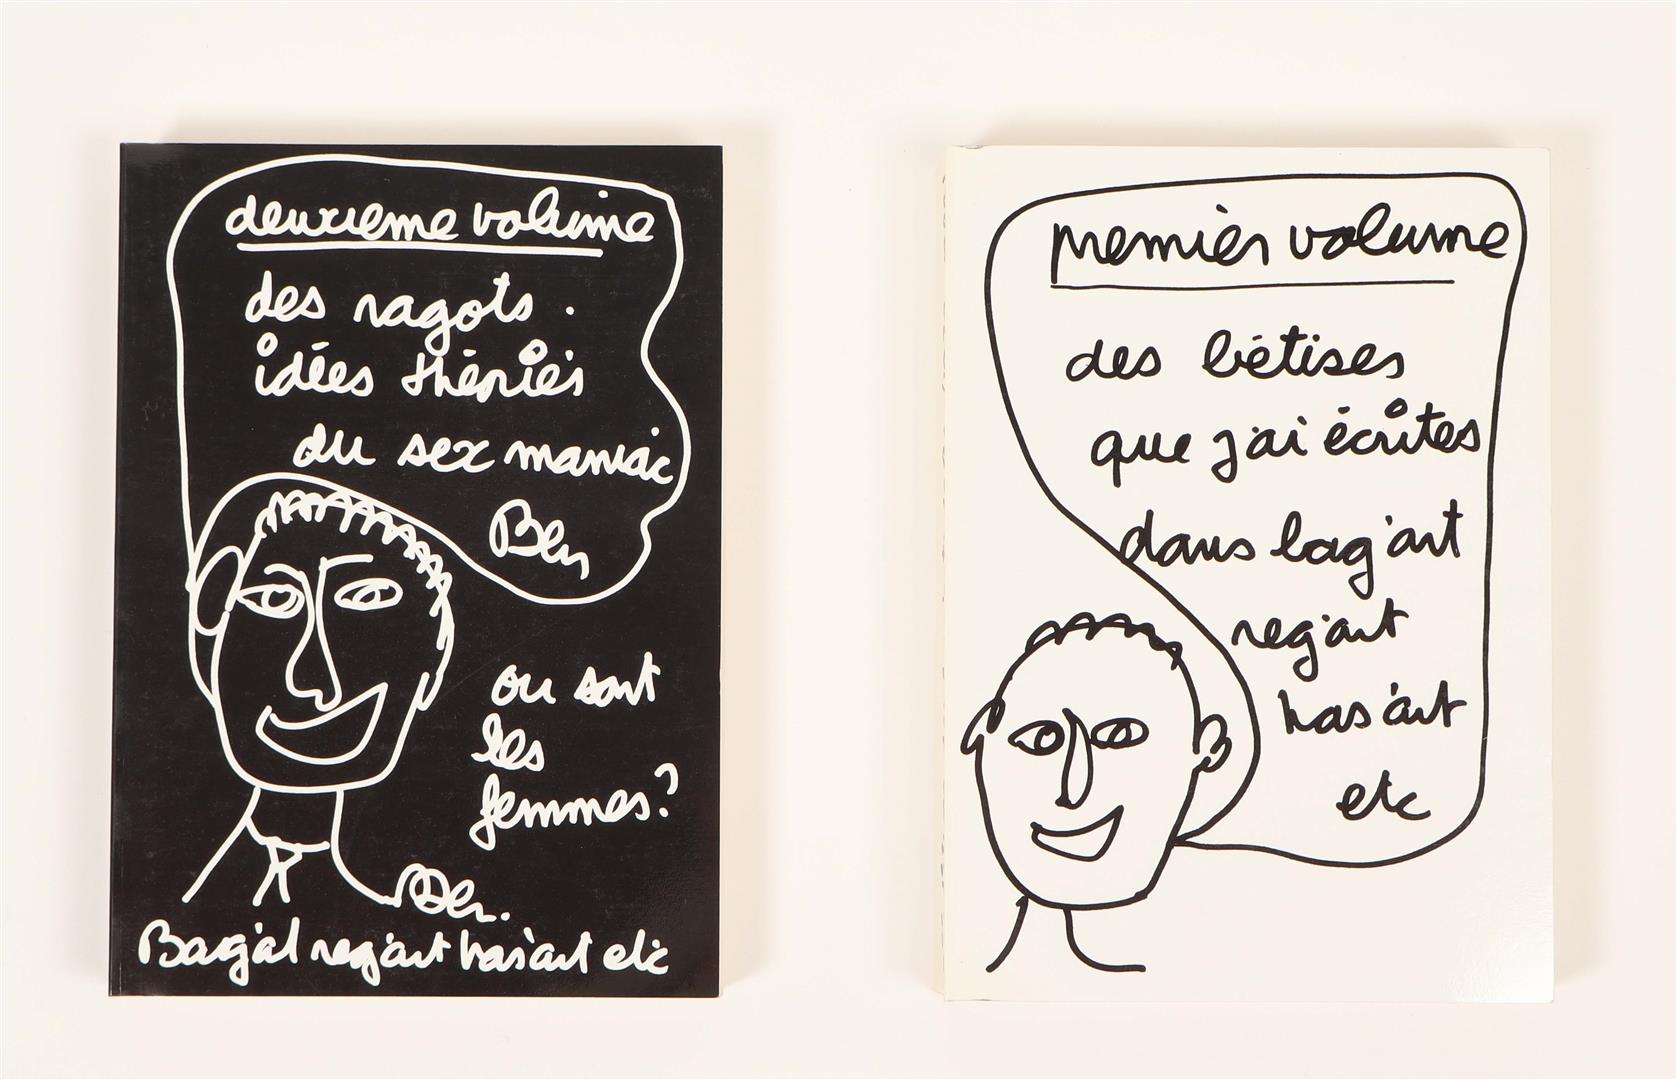 deuxieme volume
des ragots.
idées théories
du sex maniac
Ben
ou sont
les
femmes?
Ben.
Bag'at reg'art has'art etc
premier volume
des bétises
que j'ai écrites
dans bag'art
reg'art
has'art
etc